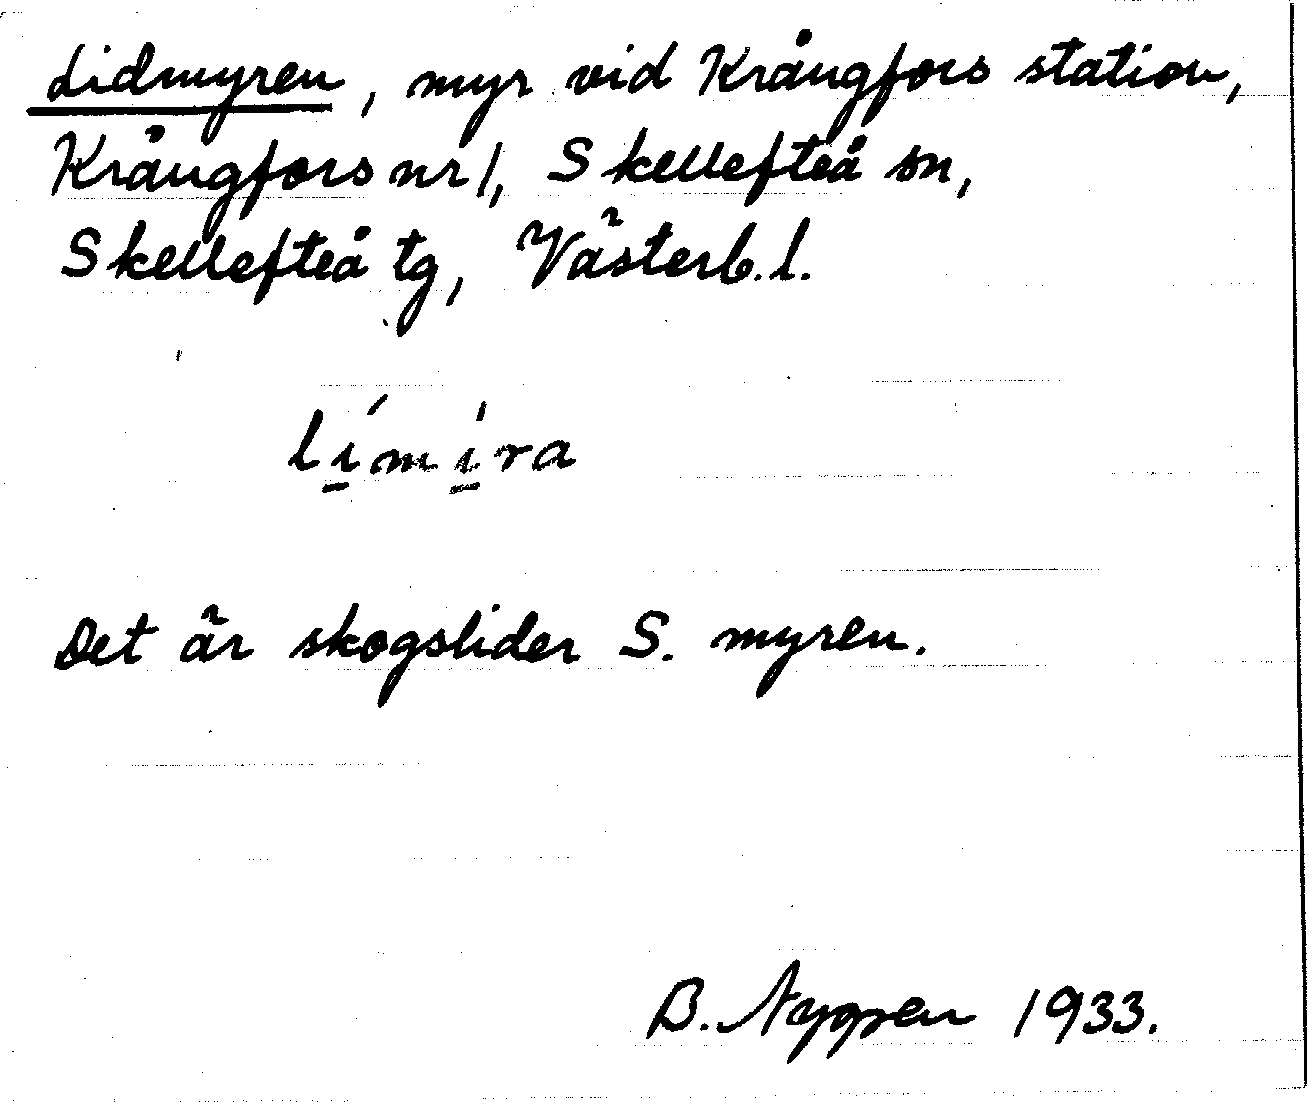 Lidmyren, myr vid Krångfors station,
Krångfors nr 1, Skellefteå sn,
Skellefteå tg, Västerb. l.
li̱´mì̱ra
Det är skogslider S. myren.
B. Nygren 1933.